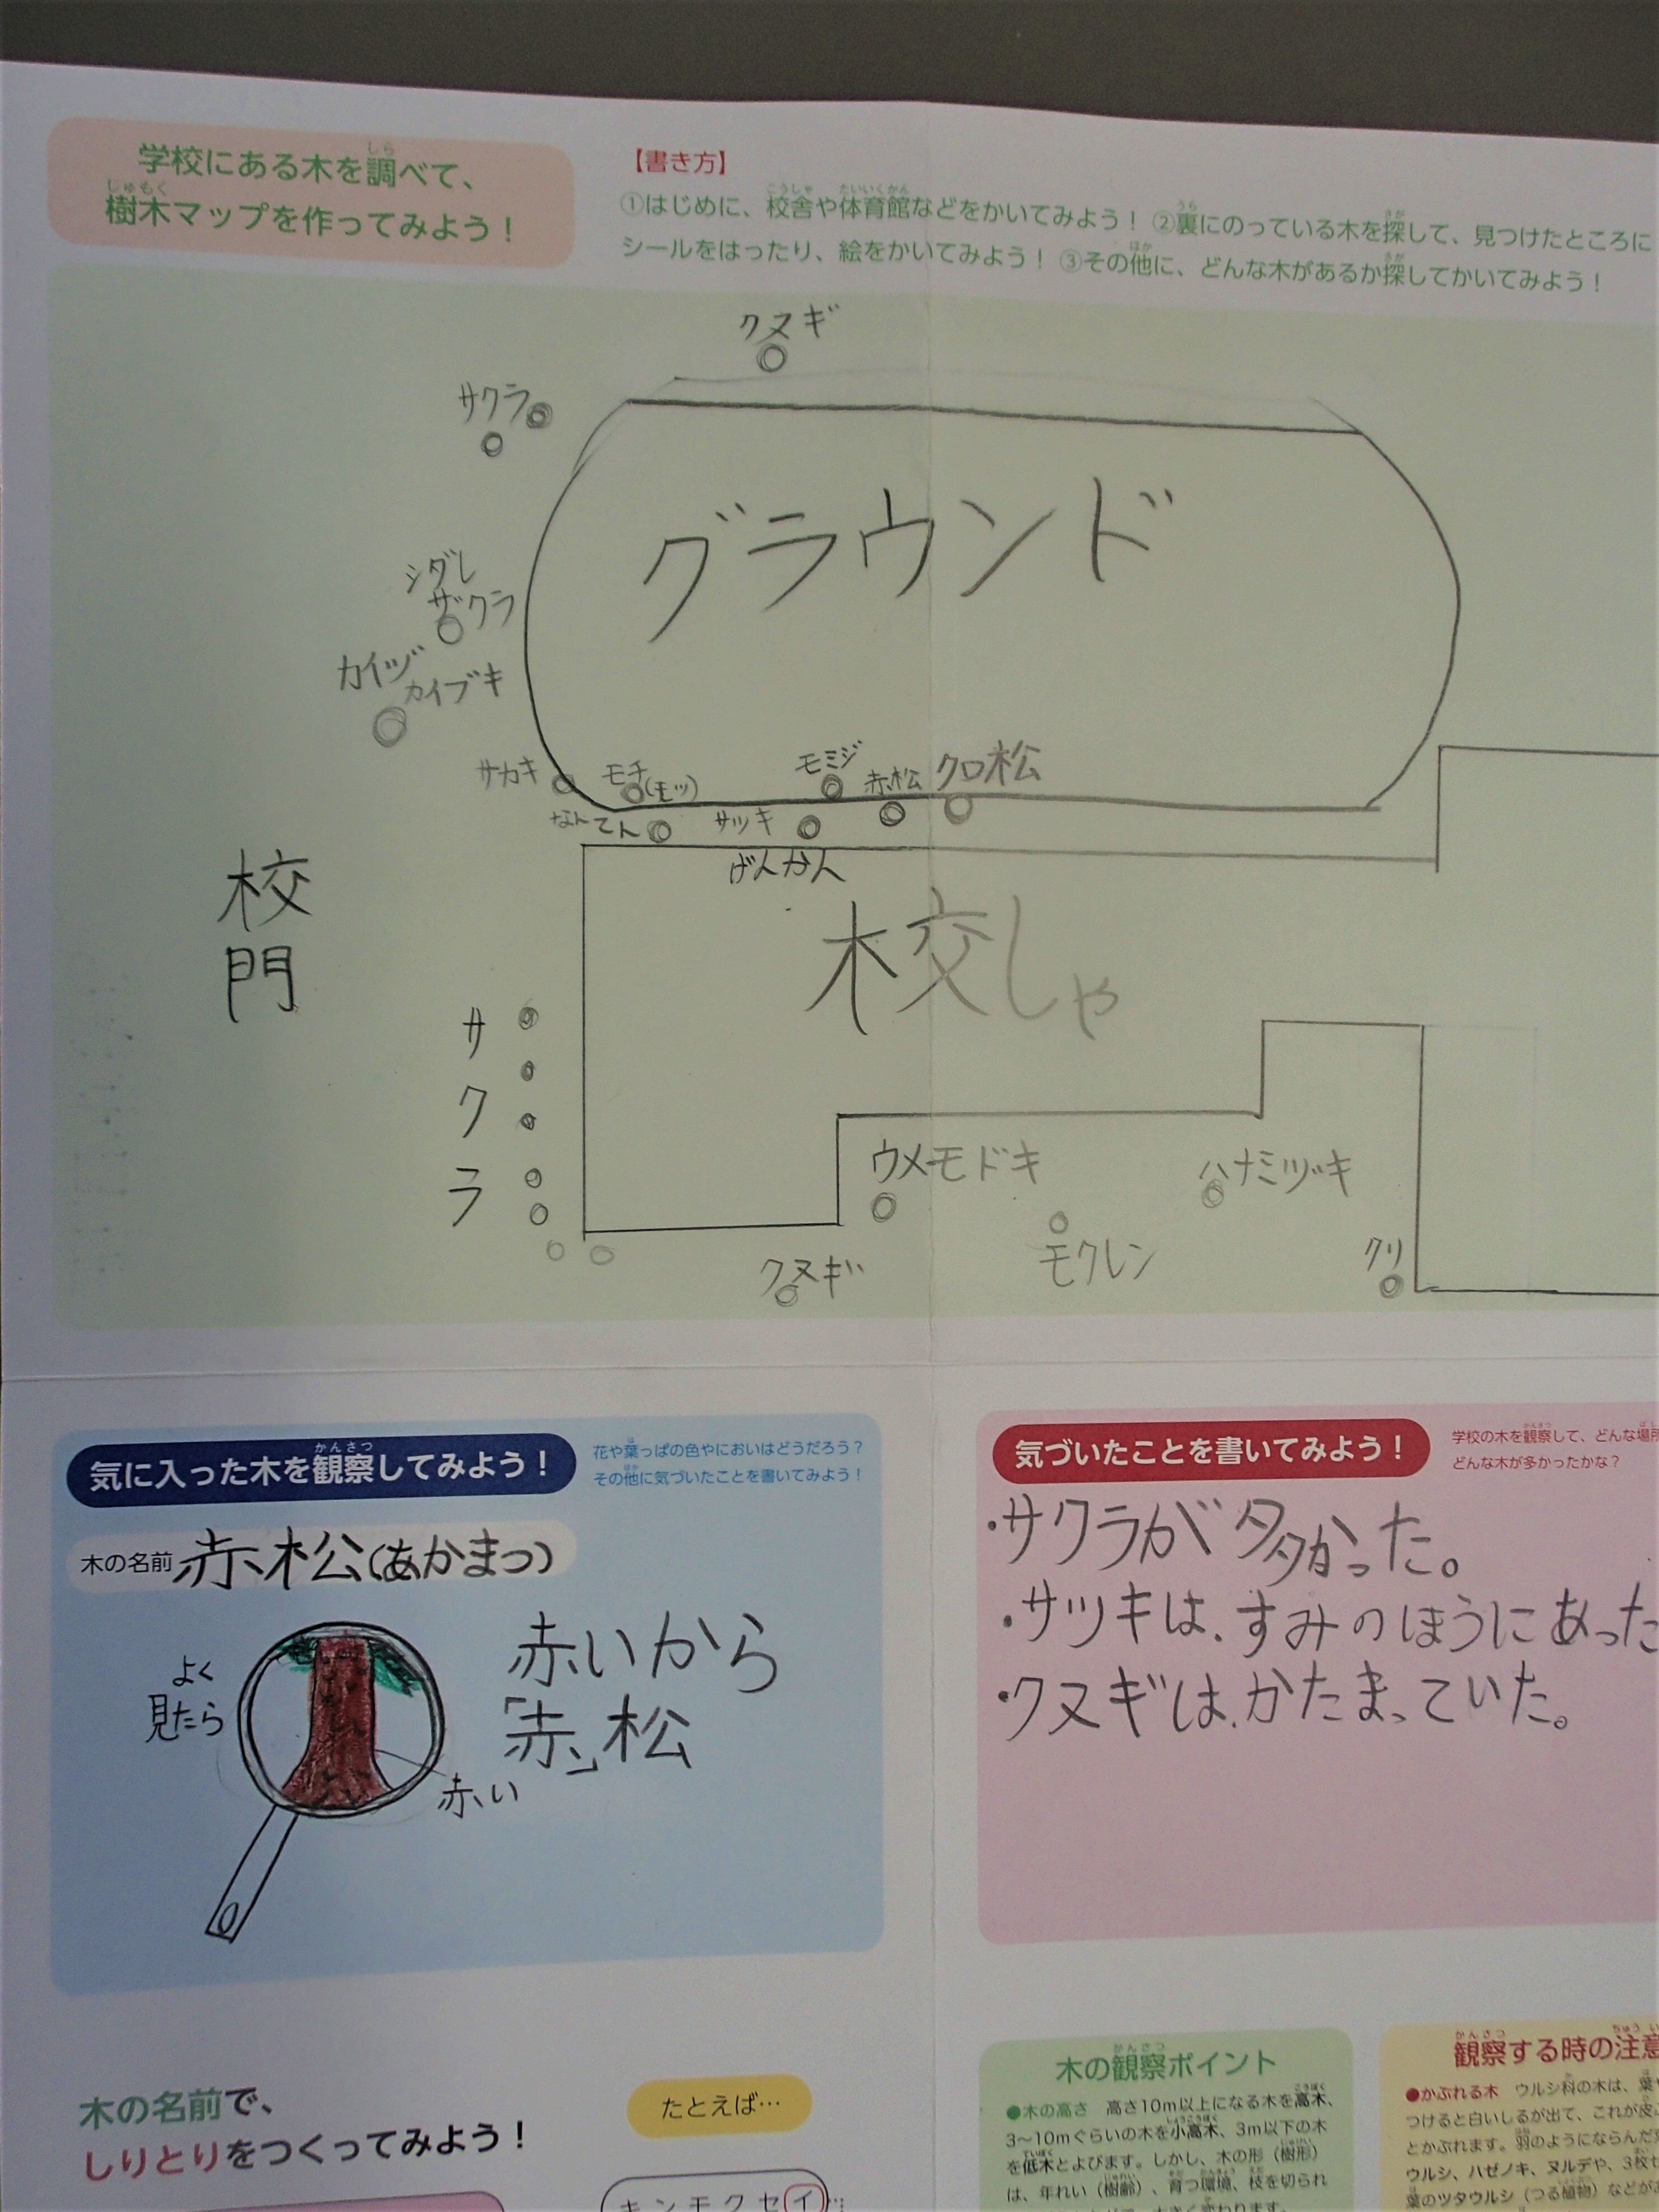 学校にある木を調べて、
樹木マップを作ってみよう！
【書き方】
①はじめに、校舎や体育館などをかいてみよう！ ②裏にのっている木を探して、見つけたところに
シールをはったり、絵をかいてみよう！ ③その他に、どんな木があるか探してかいてみよう！
クヌギ
サクラ
グラウンド
シダレ
ザクラ
カイヅ
カイブキ
サカキ
モチ(モッ)
モミジ
赤松
クロ松
なんてん
サツキ
げんかん
校門
校しゃ
サクラ
ウメモドキ
ハナミヅキ
モクレン
クヌギ
クリ
気に入った木を観察してみよう！
花や葉っぱの色やにおいはどうだろう？
その他に気づいたことを書いてみよう！
木の名前 赤松(あかまつ)
よく
見たら
赤い
赤いから
「赤」松
気づいたことを書いてみよう！
学校の木を観察して、どんな場所
どんな木が多かったかな？
・サクラが多かった。
・サツキは、すみのほうにあった
・クヌギは、かたまっていた。
木の名前で、
しりとりをつくってみよう！
たとえば…
キンモクセイ…
木の観察ポイント
●木の高さ 高さ10m以上になる木を高木、
3〜10mぐらいの木を小高木、3m以下の木
を低木とよびます。しかし、木の形（樹形）
は、年れい（樹齢）、育つ環境、枝を切られ
観察する時の注意
●かぶれる木 ウルシ科の木は、葉
つけると白いしるが出て、これが皮
とかぶれます。羽のようにならんだ
ウルシ、ハゼノキ、ヌルデや、3枚
葉のツタウルシ（つる植物）などが